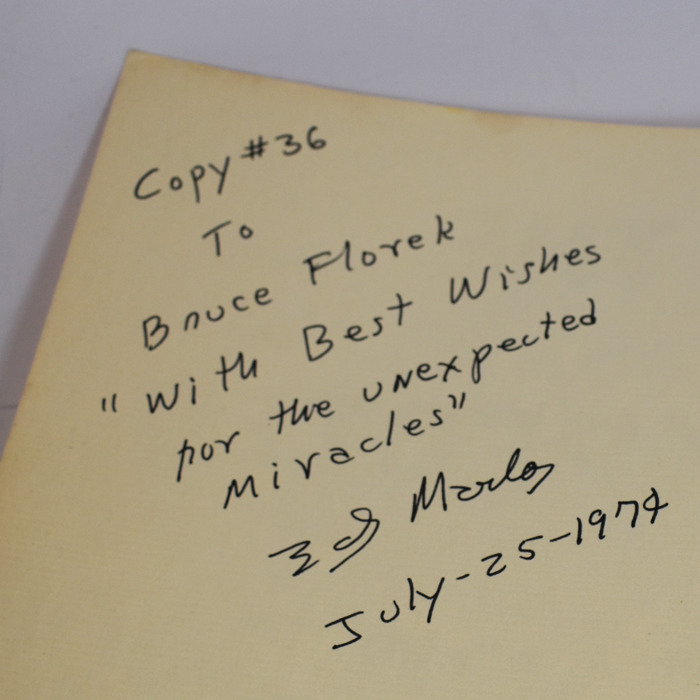 Copy #36
To
Bruce Florek
"With Best Wishes
for the unexpected
Miracles"
Ed Marlo
July-25-1974